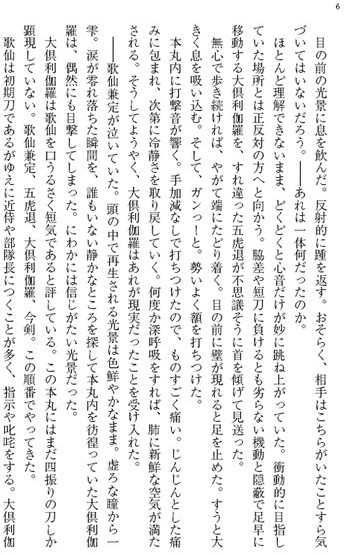 6
目の前の光景に息を飲んだ。反射的に踵を返す。おそらく、相手はこちらがいたことすら気
づいてはいないだろう。――あれは一体何だったのか。
ほとんど理解できないまま、どくどくと心音だけが妙に跳ね上がっていた。衝動的に目指し
ていた場所とは正反対の方へと向かう。脇差や短刀に負けるとも劣らない機動と隠蔽で足早に
移動する大倶利伽羅を、すれ違った五虎退が不思議そうに首を傾げて見送った。
無心で歩き続ければ、やがて端にたどり着く。目の前に壁が現れると足を止めた。すうと大
きく息を吸い込む。そして、ガンっ！と。勢いよく額を打ちつけた。
本丸内に打撃音が響く。手加減なしで打ちつけたので、ものすごく痛い。じんじんとした痛
みに包まれ、次第に冷静さを取り戻していく。何度か深呼吸をすれば、肺に新鮮な空気が満た
される。そうしてようやく、大倶利伽羅はあれが現実だったことを受け入れた。
――歌仙兼定が泣いていた。頭の中で再生される光景は色鮮やかなまま。虚ろな瞳から一
雫。涙が零れ落ちた瞬間を、誰もいない静かなところを探して本丸内を彷徨っていた大倶利伽
羅は、偶然にも目撃してしまった。にわかには信じがたい光景だった。
大倶利伽羅は歌仙を口うるさく短気であると評している。この本丸にはまだ四振りの刀しか
顕現していない。歌仙兼定、五虎退、大倶利伽羅、今剣。この順番でやってきた。
歌仙は初期刀であるがゆえに近侍や部隊長につくことが多く、指示や叱咤をする。大倶利伽